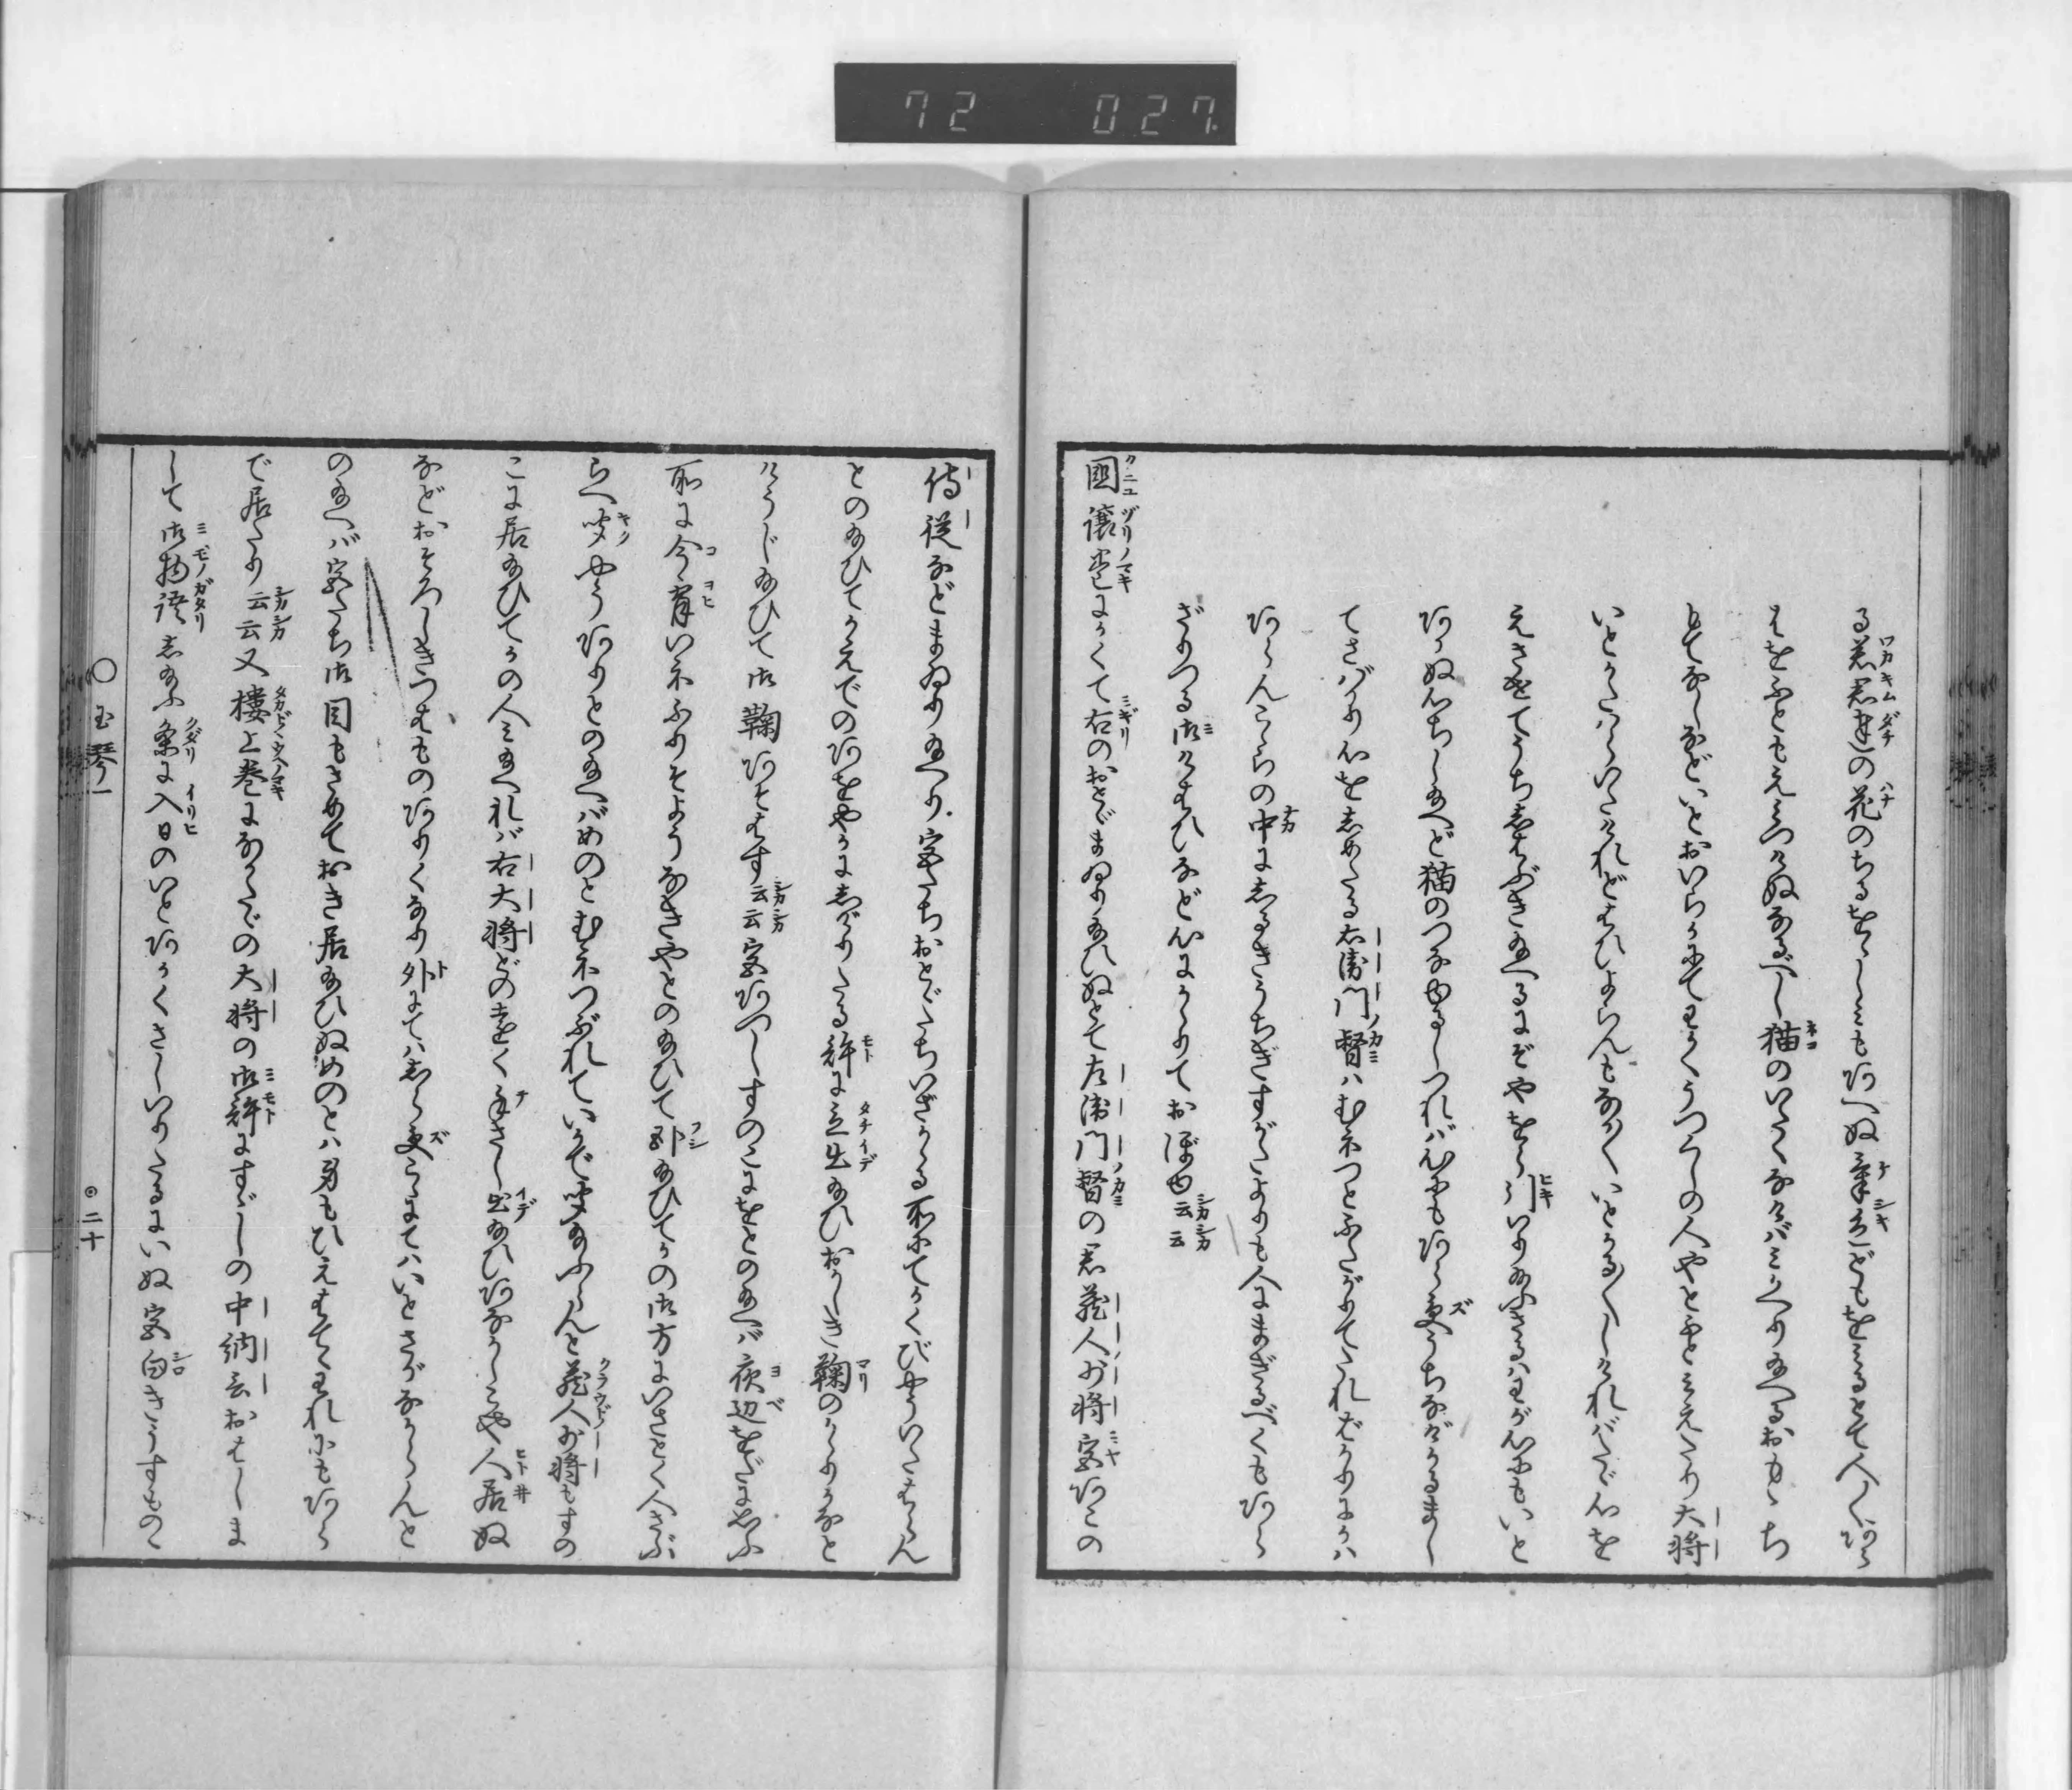 72 027
る若君達の花のちるををしみもあへぬ気色どもをみるとて人々あら
はをふともえみつけぬなるべし猫のいたくなけばみかへり給へるおもゝち
もてなしなどいとおいらかにてわかくうつくしの人やとふとみえたり大将
いとかたはらいたけれどはひよらんもなか〳〵いとかる〳〵しければたゞ心を
えさせてうちしはぶき給へるにぞやをら引いり給ふさるはわが心にもいと
あかぬ心ちし給へど猫のつなゆるしつれば心にもあらずうちなげかるまし
てさばかり心をしめたる右衛門督ハむねつとふたがりてたればかりにかハ
あらんこゝらの中にしるきうちぎすがたよりも人にまぎるべくもあら
ざりつる御けはひなど心にかゝりておぼゆ云云
國讓巻にかくて右のおとゞまゐり給ひぬとて左衛門督の君蔵人少将宮あこの
侍従などまゐり給へり宮たちおとゞたちいざかゝる所にてかくびやういたはらん
とのたまひてかえでのあをやかにしげりたる許に立出給ひおかしき鞠のかゝりかなと
けうじ給ひて御鞠あそばす云云宮あつしすのこにをとのたまへば夜辺をだにしふ
所に今宵いねふりそようなきやとのたまひて臥給ひてかの御方にいさとく人さぶ
らへ聞やうありとのたまへばめのとむねつぶれていかで聞たまふらんと蔵人少将もすの
こに居給ひてかの人みたまへれば右大将どの遠く手さし出給ひあながしこや人居ぬ
などおそろしきつはものありくなり外にてハ
のたまへば宮たち御目もさめておき居給ひぬめのとハ身もひえはてゝわれにもあら
で居たり云云又樓上巻になかたゞの大将の御許にすゞしの中納言おはしま
して御物語したまふ条に入日のいとあかくさしいりたるにいぬ宮白きうすものゝ
〇玉琴一 二十